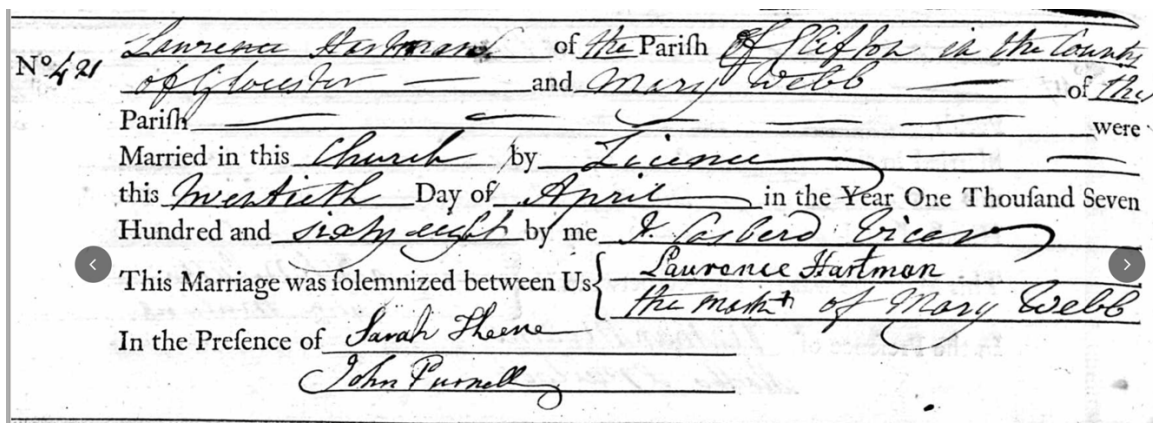 Lawrence Hartman of the Parish Of Clifton in the County
Nº 421 of Glouester and Mary Webb of the
Parish were
Married in this Church by Licence
this Twentieth Day of April in the Year One Thousand Seven
Hundred and sixty eight by me J. Casberd Vicar
This Marriage was solemnized between Us { Lawrence Hartman
the mark + of Mary Webb
In the Presence of Sarah
John Purnell